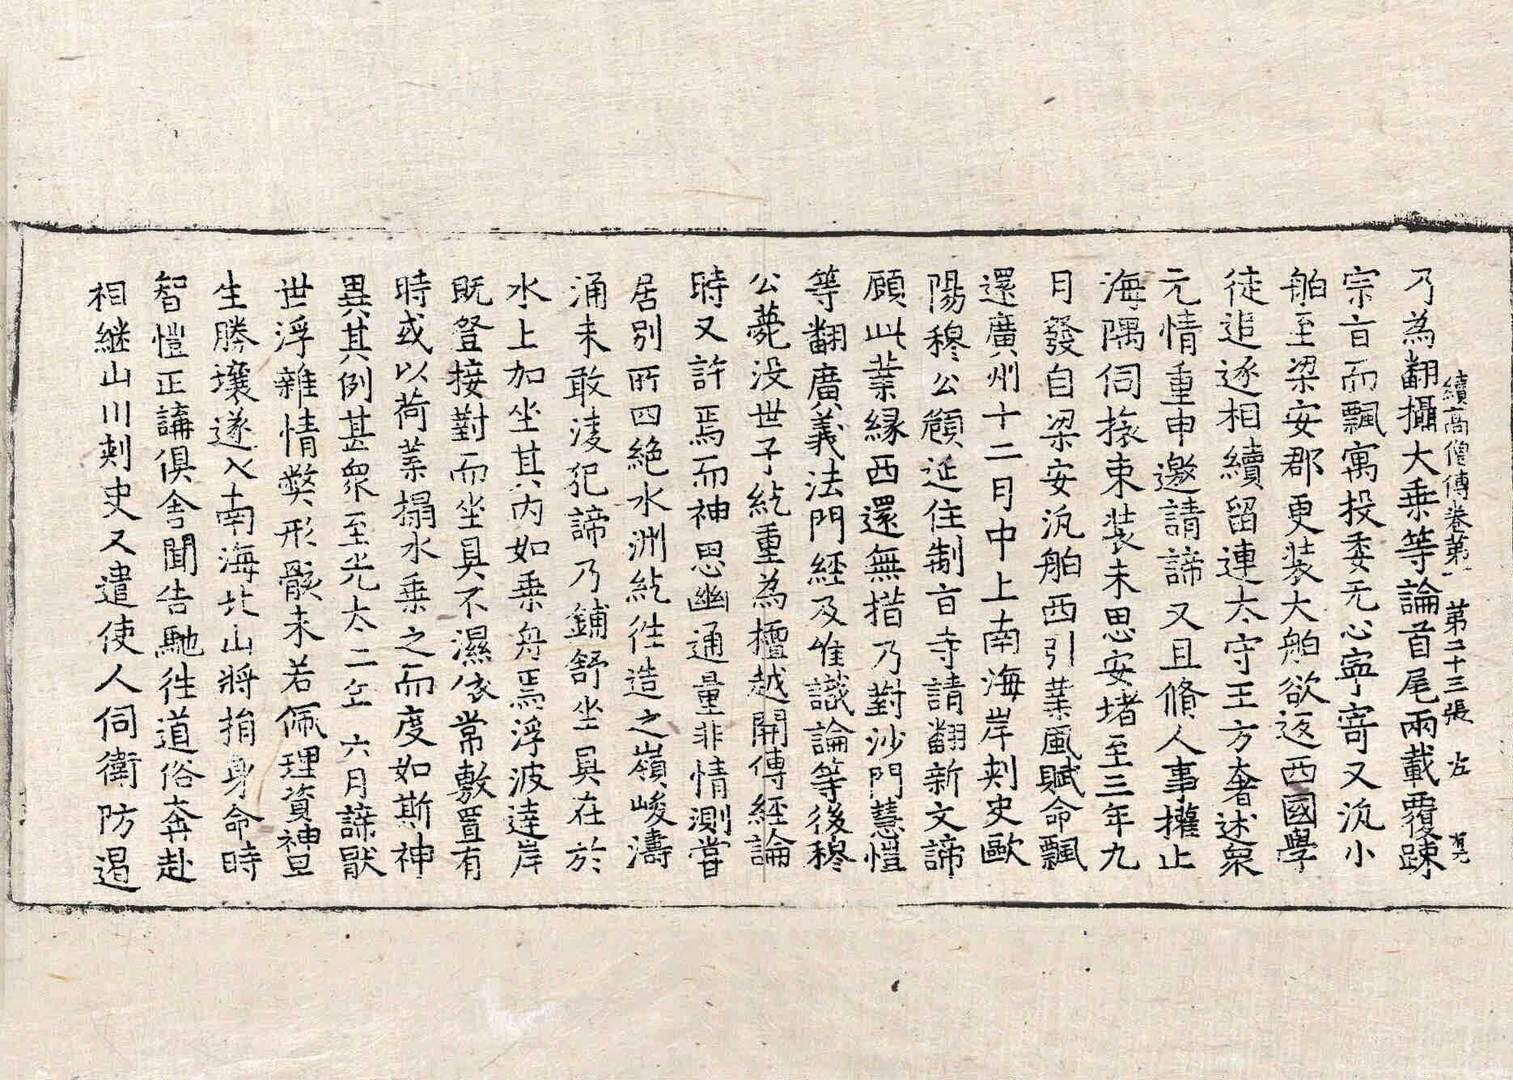 續高僧傳卷第一 第二十三張 左
乃為翻攝大乗等論首尾兩載覆踈
宗旨而飄寓投委无心寧寄又汎小
舶至梁安郡更装大舶欲返西國學
徒追逐相續留連太守王方奢述衆
元情重申邀請諦又且脩人事權止
海隅伺旅束装未思安堵至三年九
月發自梁安汎舶西引業風賦命飄
還廣州十二月中上南海岸刺史歐
陽穆公頠延住制旨寺請翻新文諦
顧此業縁西還無措乃對沙門慧愷
等翻廣義法門經及唯識論等後穆
公薨没世子紇重為檀越開傳經論
時又許焉而神思幽通量非情測嘗
居別所四絶水洲紇徃造之嶺峻濤
涌未敢淩犯諦乃鋪舒坐具在於
水上加坐其内如乗舟焉浮波達岸
既登接對而坐具不濕依常敷置有
時或以荷葉搨水乗之而度如斯神
異其例甚衆至光太二年六月諦猒
世浮雜情弊形骸未若佩理資神旦
生勝壤遂入南海北山將捐身命時
智愷正講俱舍聞告馳徃道俗奔赴
相継山川刺史又遣使人伺衛防遏